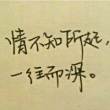 情不知所起，
一往而深。